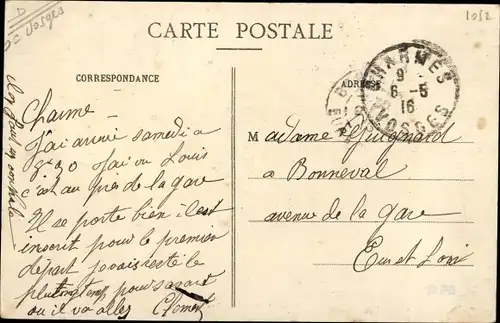 D
Vosges
1052
CARTE POSTALE
CORRESPONDANCE
ADRESSE
CHARMES
9
6 -5
16
VOSGES
Charme
J'ai arrivé samedi a
J'ai vu Louis
c'est au près de la gare
Il se porte bien il est
inscrit pour le premier
départ je vais resté le
plus longtemp pour savoir
ou il va aller Clement
Madame Guignard
a Bonneval
avenue de la gare
Eure et Loir